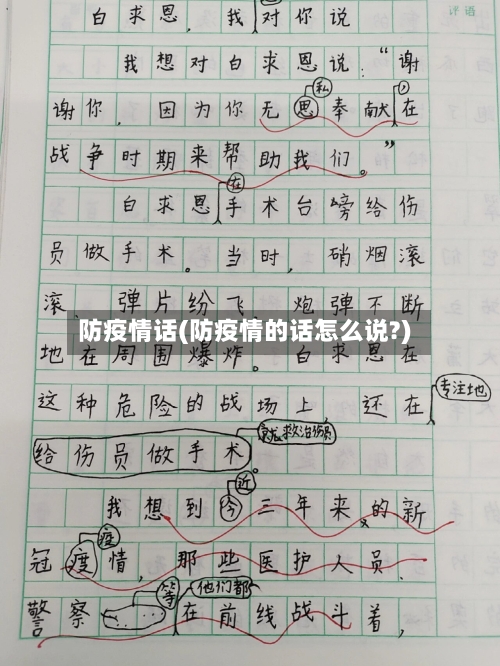 评语
白求恩,我对你说
我想对白求恩说:“谢
私
谢你,因为你无恩奉献,在
战争时期来帮助我们。”
在
白求恩手术台嗙给伤
员做手术。当时,硝烟滚
滚,弹片纷飞,炮弹不断
防疫情话(防疫情的话怎么说?)
地在周围爆炸。白求恩在
专注地
这种危险的战场上,还在
就救治伤员
给伤员做手术。
近
我想到今三年来,的新
疫
冠疫情,那些医护人员、
等 他们都
警察……在前线战斗着,